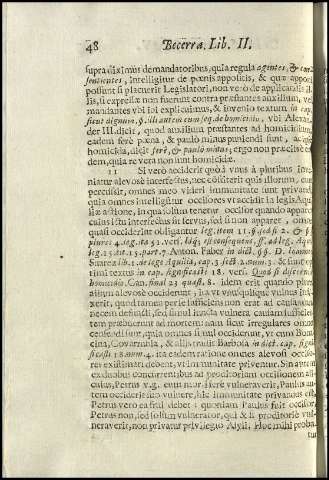 48 Becerra. Lib. II.
supra diximus de mandatoribus, quia regula agentes, &
sentientes, intelligitur de pœnis appositis, & quæ
possunt si placuerit Legislatori, non verò de applicandis
lis, si expressæ non fuerunt contra præstantes auxilium, vel
mandantes vbi ioi explicuimus, & invenio textum in cap.
sicut dignum. §. illi autem eum seq. de homicidio, vbi Alexan
der III. dicit, quod auxilium præstantes ad homicidium
eadem ferè pœna, & paulò minus puniendi sunt, ac
homicida, dicit ferè, & paulo minus; ergo non præcisè
dem, quia re vera non sunt homicidæ.
11 Si verò acciderit quòd vnus à pluribus
niatur alevosè interfectus, nec constiterit quis illorum, eum
percusserit, omnes meo videri immunitate sunt privandi,
quia omnes vt occisores vt accisit in lege Aqui
liæ actione, in qua solùm tenetur occisor quando apparet
cuius ictu interfectus sit servus, sed si non apparet, omnes
quasi occiderint obligantur leg. item 11. §. sed si 2. &
plures 4. leg. ita 51. vers. idq; est consequens, ff. ad leg. Aqui
leg. 15. tit. 15. part. 7. Anton. Faber in dict. §§. D. Ioannes
Suarez lib. 1. de lege Aquilia, cap. 3. sect. 2. num. & sunt op
timi textus in cap. significasti 18. vers. Quod si discerni
homicidio, Can. final 23. quæst. 8. idem erit quando plures
alium alevosè occiderunt, ita vt vnaquæque vulnus
xerit, quod tamen per se sufficiens non erat ad causandam
necem defuncti, sed simul iuncta vulnera causam suffi
tem præbuerunt ad mortem; nam sicut irregulares omnes
censendi sunt, quia omnes simul occiderunt, vt cum
cina, Covarrubia, & alijs tradit Barbosa in dict. cap. signi
ficasti 18. num. 4. ita eadem ratione omnes alevosi occiso
res existimari debent, vt immunitate priventur. Sin autem
ex duobus concurrentibus ad proditoriam occisionem ali
cuius, Petrus v.g. eum mortiferè vulneraverit, Paulus au
tem occiderit suo vulnere, hic immunitate privandus erit,
Petrus vero ea frui debet: quoniam Paulus fuit occisor,
Petrus non, sed solùm vulnerator, qui & si proditoriè vul
neraverit, non privatur privilegio Asyli. Hoc mihi proba
tur